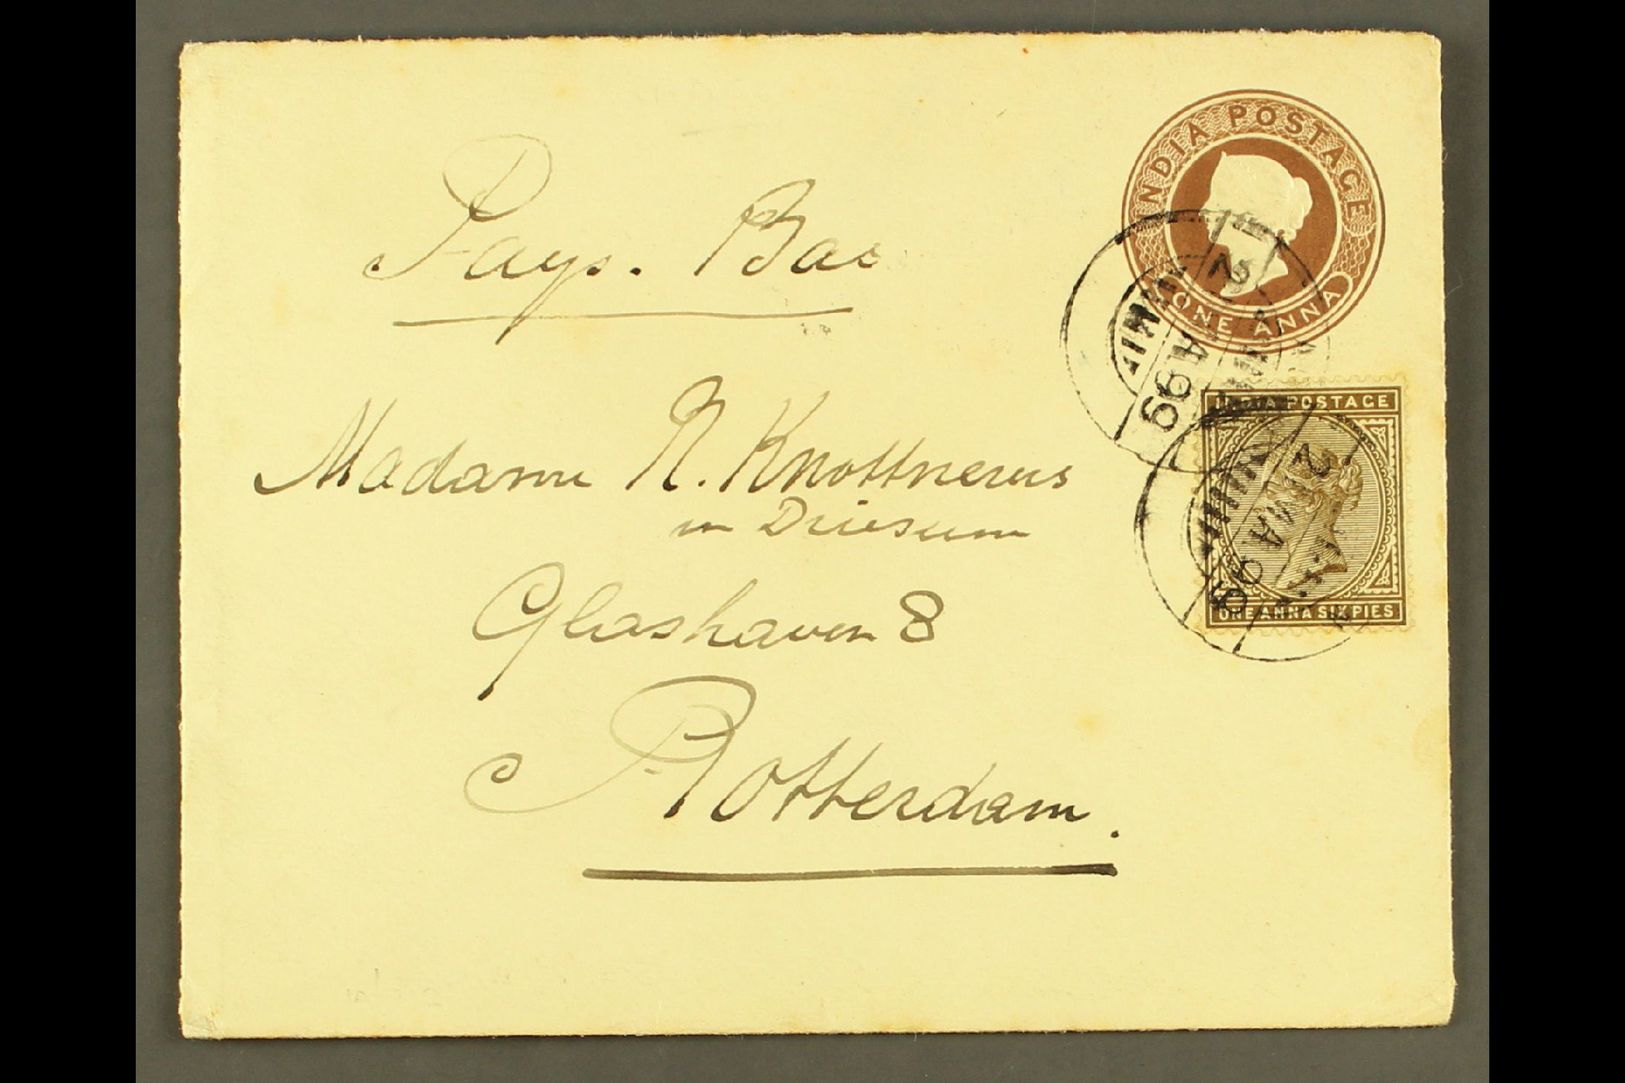 INDIA POSTAGE
ONE ANNA
Pays. Bas
2
99
INDIA POSTAGE
2 MA 99
ONE ANNA SIX PIES
Madame N. Knottnerus
Glashaven 8
Rotterdam.